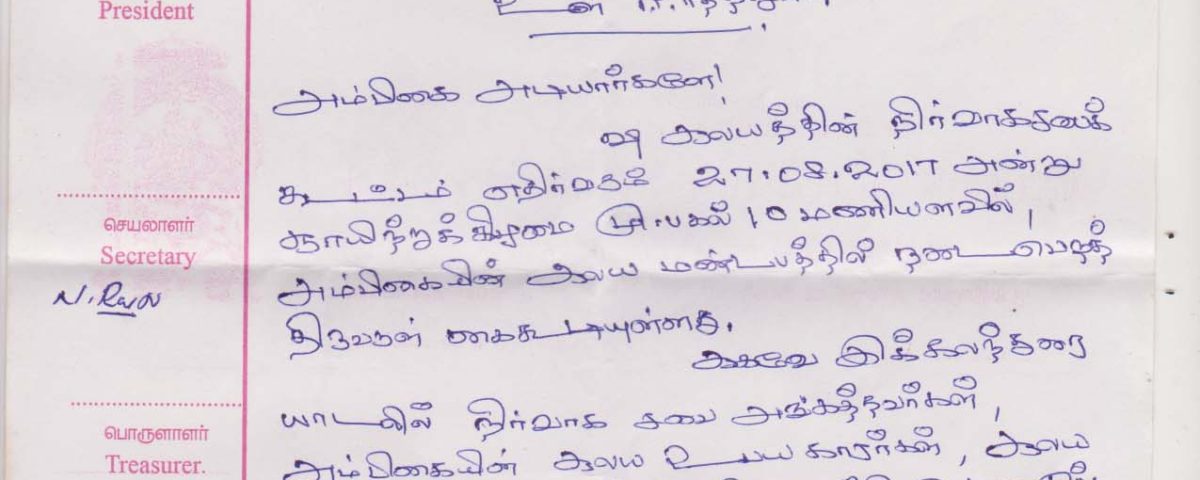 President
அம்பிகை அடியார்களே!
ஷ ஆலயத்தின் நிர்வாகசபைக்
கூட்டம் எதிர்வரும் 27.08.2017 அன்று
ஞாயிற்றுக்கிழமை மு.பகல் 10 மணியளவில்,
அம்பிகையின் ஆலய மண்டபத்தில் நடைபெறத்
திருவருள் கைகூடியுள்ளது.
ஆகவே இக்கலந்துரை
யாடலில் நிர்வாக சபை அங்கத்தவர்கள்,
அம்பிகையின் ஆலய உபயகாரர்கள், ஆலய
செயலாளர்
Secretary
பொருளாளர்
Treasurer.